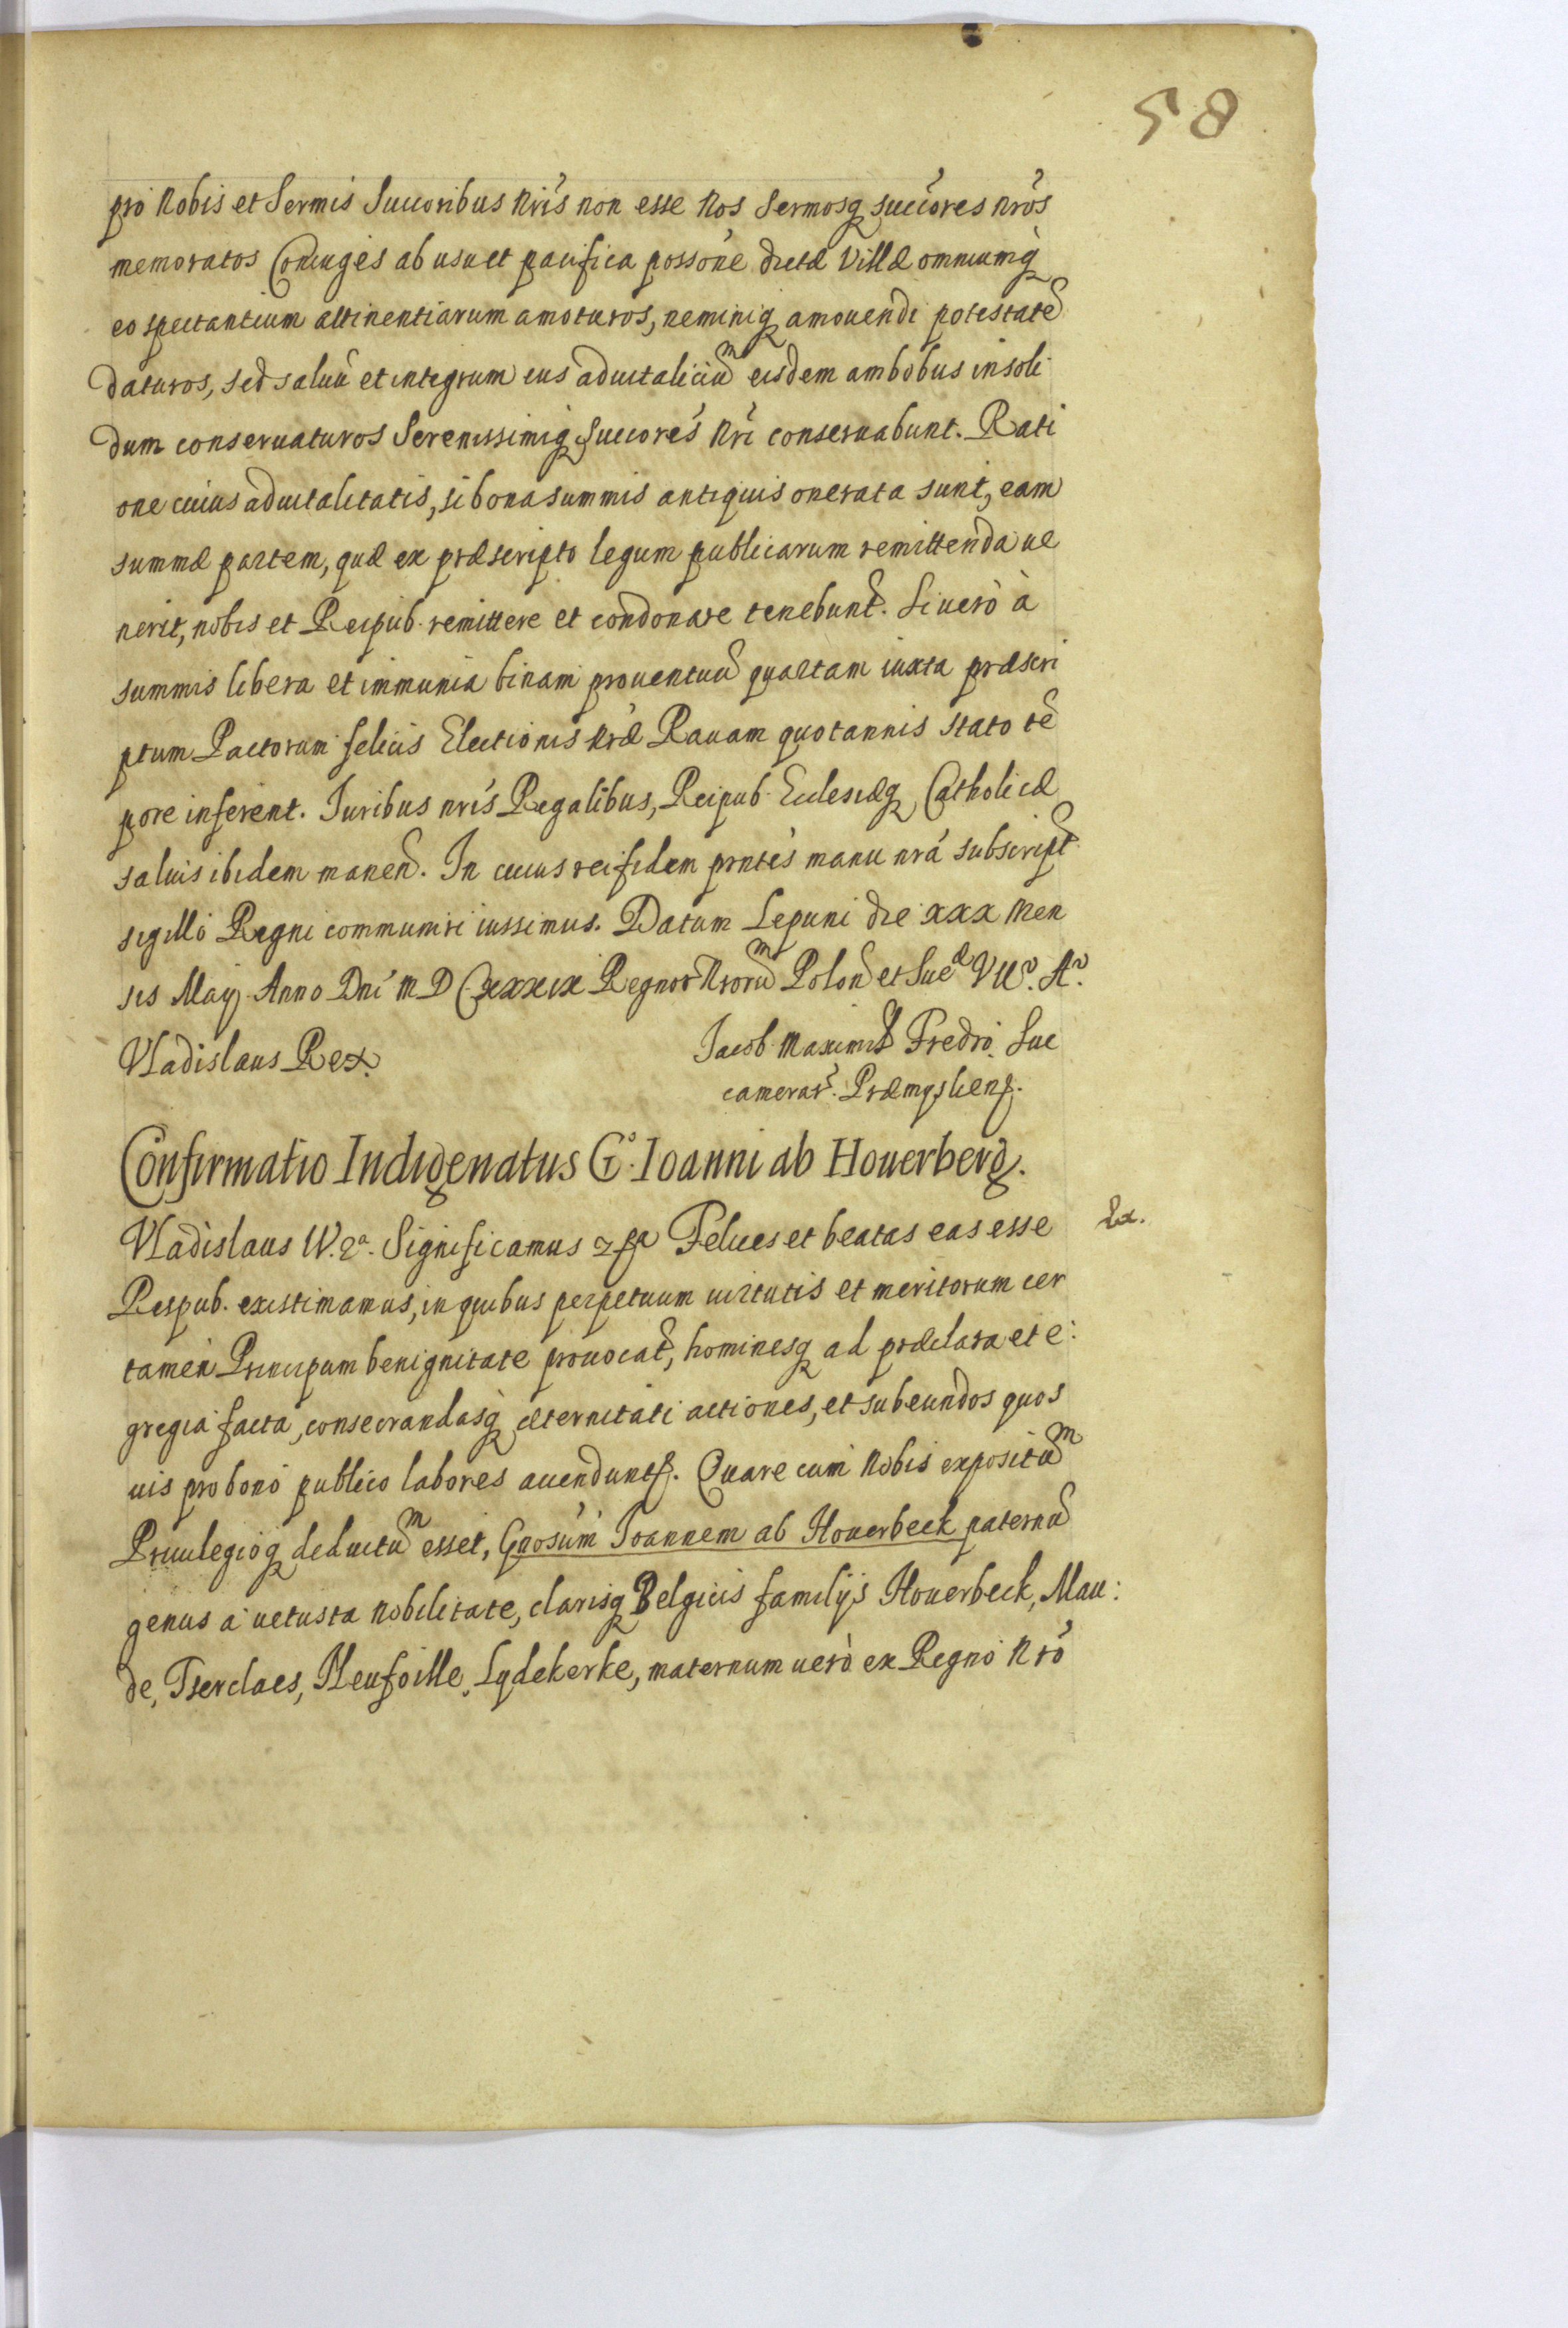 58
pro Nobis et Sermis Succoribus Nris non esse Nos Sermosq succores nros
memoratos Coniuges ab usu et pacifica possone dictæ Villæ omniumq
eo spectantium attinentiarum amoturos, neminiq amouendi potestate
daturos, sed saluu et integrum ius aduitaliciu eisdem ambobus insoli
dum conseruaturos Serenissimiq Succores Nri conseruabunt. Rati
one cuius aduitalitatis, si bona summis antiquis onerata sunt, eam
summæ partem, quæ ex præscripto legum publicarum remittenda ue
nerit, nobis et Reipub. remittere et condonare tenebunt. Si uero à
summis libera et immunia binam prouentuu quartam iuxta præscri
ptum Pactorum felicis Electionis Nræ Rauam quotannis stato te
pore inferent. Iuribus nris Regalibus, Reipub. Ecclesiæq Catholicæ
saluis ibidem manen. In cuius rei fidem prntes manu nra subscript
sigillo Regni communiri iussimus. Datum Lepuni die xxx Men
sis Maij Anno Dni M D CxxxIx Regnor Nroru Polon et Sued VII. A.
Vladislaus Rex.
Jacob Maximil Fredro. Suc
camerar. Præmysliens.
Confirmatio Indigenatus G. Ioanni ab Houerberg.
Vladislaus IV. &a. Significamus &a Felices et beatas eas esse
Ex.
Respub. existimamus, in quibus perpetuum uirtutis et meritorum cer
tamen Principum benignitate prouocat, hominesq ad præclara et e:
gregia facta, consecrandasq æternitati actiones, et subeundos quos
uis pro bono publico labores accendunt. Quare cum Nobis expositu
Priuilegioq deductu esset, Gnosum Ioannem ab Houerbeck paternu
genus a uetusta Nobilitate, clarisq Belgicis familijs Houerbeck, Mau:
de, Tserclaes, Neufoille, Lydekerke, maternum uero ex Regno Nro